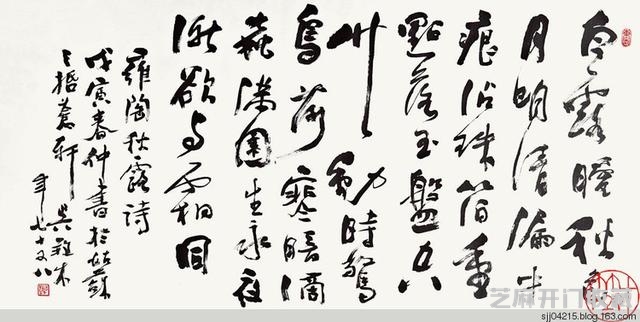 白露曖秋色
月明清漏中
痕沾珠箔重
點落玉盤空
竹動時驚
鳥莎寒暗滴
蟲滿園生永夜
漸欲與霜同
雍陶秋露詩
戊寅春仲書於姑蘇
之揖蒼軒 吳木
年七十又八
芝麻开门教网
sjj04215.blog.163.com